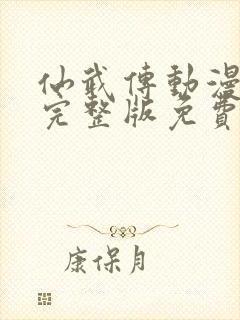 仙武傳動漫
完整版免費
康保月